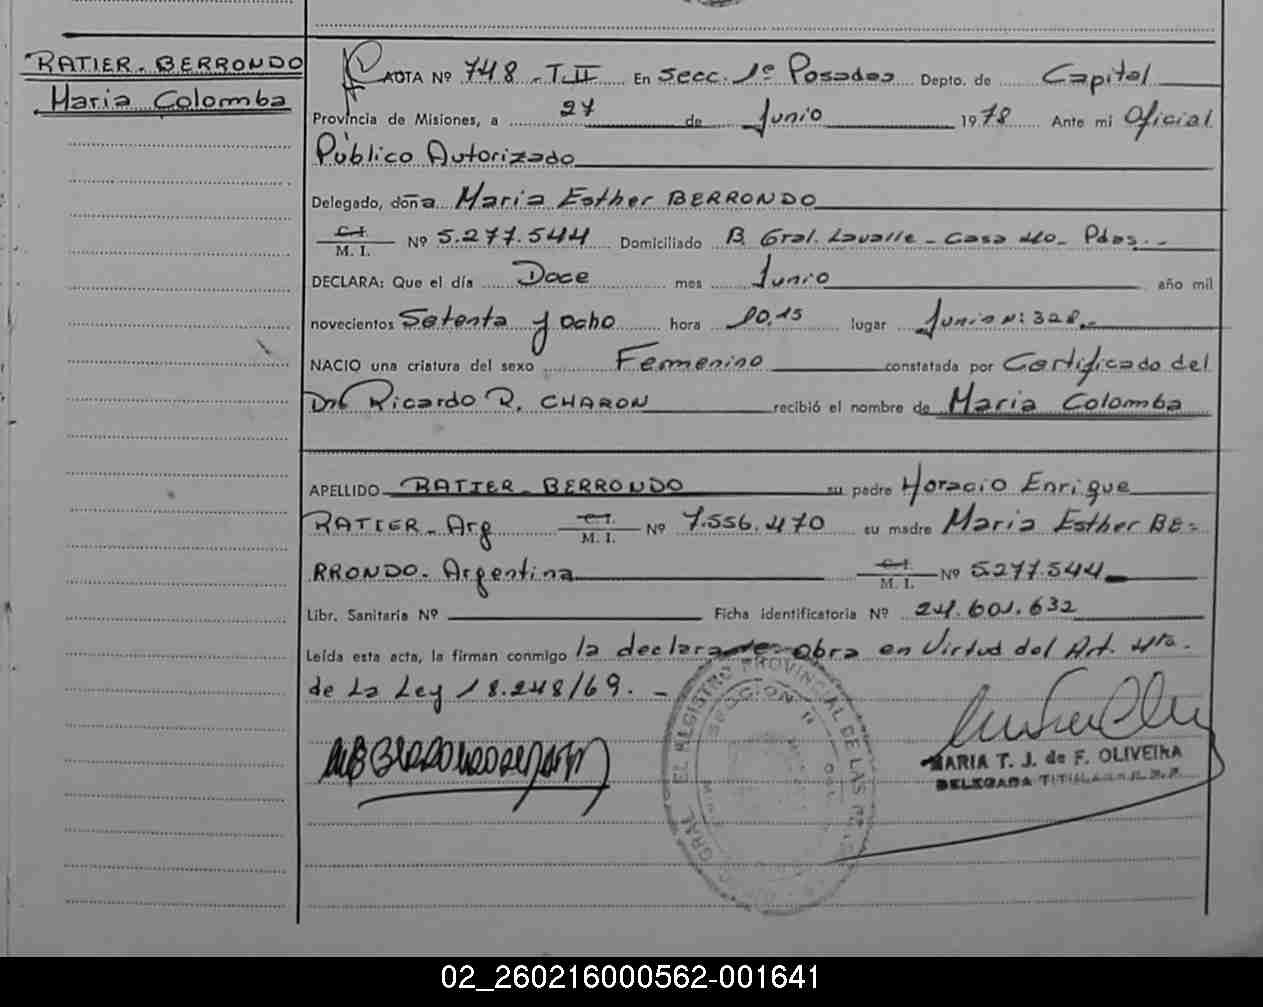 RATIER-BERRONDO
Maria Colomba
ACTA Nº 748 - T.II En Secc. 1º Posadas Depto. de Capital
Provincia de Misiones, a 27 de Junio 1978 Ante mi Oficial
Público Autorizado
Delegado, doña Maria Esther BERRONDO
C.I.
M. I. Nº 5.277.544 Domiciliado B. Gral. Lavalle - Casa 40 - Pdas. -
DECLARA: Que el día Doce mes Junio año mil
novecientos Setenta y ocho hora 10,15 lugar Junin Nº: 328.-
NACIO una criatura del sexo Femenino constatada por Certificado del
Dr. Ricardo R. CHARON recibió el nombre de Maria Colomba
APELLIDO RATIER-BERRONDO su padre Horacio Enrique
RATIER - Arg C.I.
M. I. Nº 7.556.470 su madre Maria Esther BE-
RRONDO. Argentina C.I.
M. I. Nº 5.277.544
Libr. Sanitaria Nº Ficha identificatoria Nº 24.601.632
Leída esta acta, la firman conmigo la declarante - obra en Virtud del Art. 4to.
de La Ley 18.248/69. -
MARIA T. J. de F. OLIVEIRA
DELEGADA TITULAR
REGISTRO PROVINCIAL DE LAS
SECCION 1ª
02_260216000562-001641